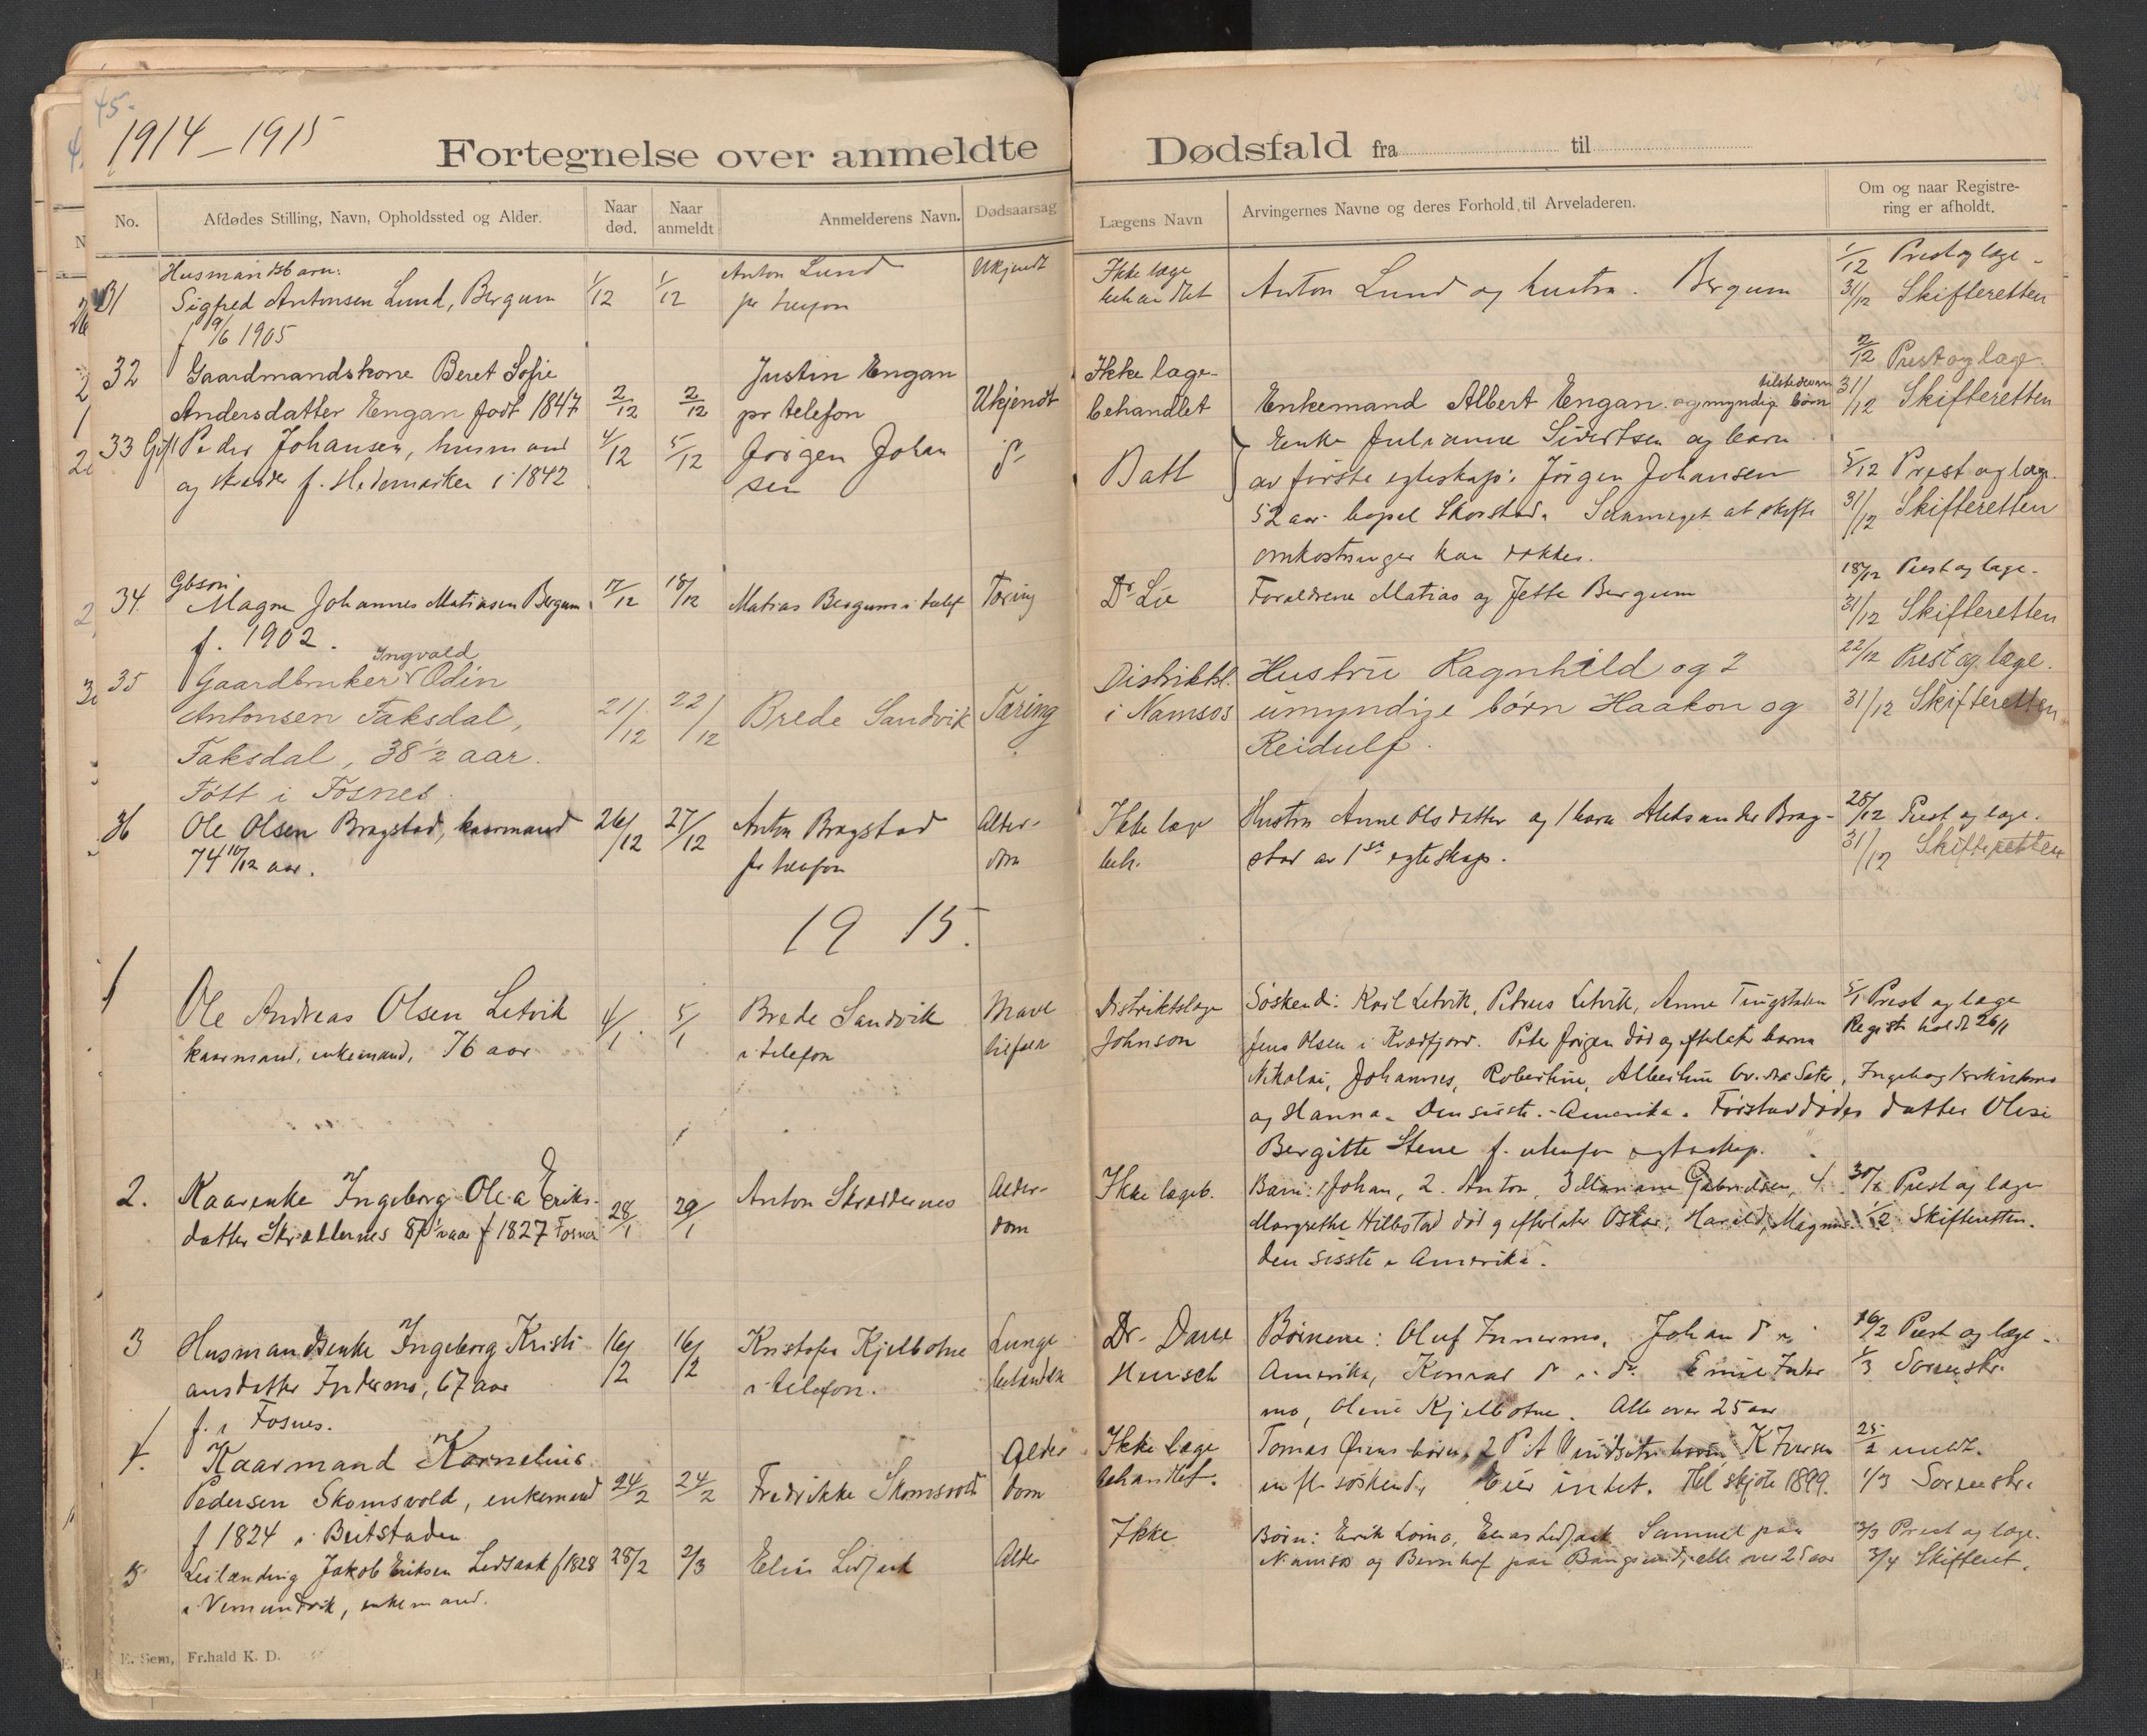 45.
1914-1915
Fortegnelse over anmeldte Dødsfald fra til
No.
Afdødes Stilling, Navn, Opholdssted og Alder.
Naar død.
Naar anmeldt
Anmelderens Navn.
Dødsaarsag
Lægens Navn
Arvingernes Navne og deres Forhold til Arveladeren.
Om og naar Registre-
ring er afholdt.
31
Husmandsbarn:
Sigfred Antonsen Lund, Bergum
f 9/6 1905
1/12
1/12
Anton Lund
pr telefon
Ukjendt
Ikke læge
behandlet
Anton Lund og hustru. Bergum
1/12 Prest og læge
31/12 Skifteretten
32
Gaardmandskone Beret Sofie
Andersdatter Engan født 1847
2/12
2/12
Justin Engan
pr telefon
Ukjendt
Ikke læge-
behandlet
Enkemand Albert Engan og myndige børn
2/12 Prest og læge
31/12 Skifteretten
33
Gift Peder Johansen, husmand
og f. Hedemarken i 1842
4/12
5/12
Jørgen Johan
sen
Enke Julianne Sivertsen og barn
av første egteskap: Jørgen Johansen
52 aar bopel Skorstad. at skifte
omkostninger kan dækkes.
5/12 Prest og læge.
31/12 Skifteretten
34.
Gbsøn
Magne Johannes Matiasen Bergum
f. 1902.
17/12
18/12
Matias Bergum i telef
Tæring
Dr Lie
Forældrene Matias og Jette Bergum
18/12 Prest og læge.
31/12 Skifteretten
35
Ingvald
Gaardbruker Odin
Antonsen Faksdal,
Faksdal, 38 1/2 aar.
Født i Fosnes.
21/12
22/12
Brede Sandvik
Tæring
Distriktsl.
i Namsos
Hustru Ragnhild og 2
umyndige børn Haakon og
Reidulf.
22/12 Prest og læge.
31/12 Skifteretten
36
Ole Olsen Bragstad, kaarmand
74 10/12 aar.
26/12
27/12
Anton Bragstad
pr telefon
Alder-
dom
Ikke læge
beh.
Hustru Anne Olsdatter og 1 barn Aleksander Brag-
stad av 1ste egteskap.
28/12 Prest og læge.
31/12 Skifteretten
1915.
1
Ole Andreas Olsen Letvik
kaarmand, enkemand, 76 aar
4/1.
5/1
Brede Sandvik
i telefon
Mave
Distriktslæge
Johnson
Søskende: Karl Letvik, Petrus Letvik, Anne
Jens Olsen i Kvædfjord. Peter Jørgen død og efterlater barna
Nikolai, Johannes, Robertine, Albertine
og Hanna. Den sidste i Amerika. datter
Bergitte Stene f. utenfor egteskap.
5/1 Prest og læge
Registr holdt 26/1
2.
Kaarenke Ingeborg Olea Eriks-
datter 87 1/2 aar f 1827 Fosnes
28/1
29/1
Anton
Alder-
dom
Ikke lægeb.
Barn: 1 Johan, 2. Anton, 3 4.
Margrethe Hilbstad død og efterlater Oskar, Harald, Magnus.
den sisste i Amerika.
30/1 Prest og læge
1/2 Skifteretten.
3
Husmandsenke Ingeborg Kristi-
ansdatter Indermo, 67 aar
f. i Fosnes.
16/2
16/2
Kristofer Kjelbotne
i telefon.
Lunge
Dr.
Børnene: Oluf Innermo, Johan
Amerika, Konrad Emil Inder
mo, Oline Kjelbotne. Alle over 25 aar
16/2 Prest og læge
1/3 Sorenskr.
4.
Kaarmand Kornelius
Pedersen Skomsvold, enkemand
f 1824 i Beitstaden
24/2
24/2
Fredrikke Skomsvold
Alder
dom
Ikke læge
behandlet.
Tomas Øiens børn, 2 P. A
søskende. Eier intet. skjøte 1899.
25/2 meldt.
1/3 Sorenskr.
5
Leilænding Jakob Eriksen f 1828
i Vemundvik, enkemand.
28/2
2/3
Elias
Alder
Ikke
Børn: Erik Samuel paa
Namsos og Bernhof paa Bangsund, alle over 25 aar
2/3 Prest og læge.
3/4 Skifteret.
E. Sem, Fr.hald K. D.